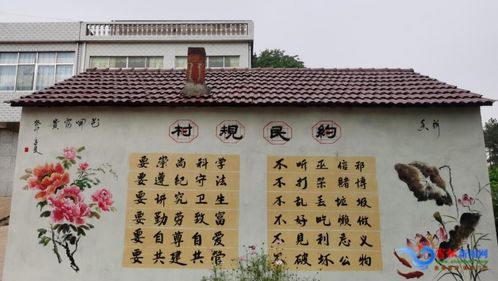 村規民約
貴富開花
要崇尚科学
要遵纪守法
要讲究卫生
要勤劳致富
要自尊自爱
要共建共管
不听巫信邪
不打架赌博
不乱丢垃圾
不好吃懒做
不見利忘义
不破坏公物